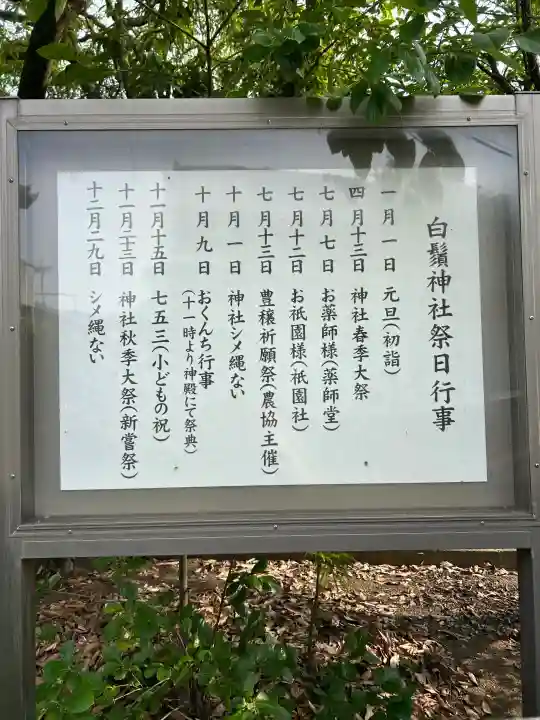 白鬚神社祭日行事
一月一日 元旦(初詣)
四月十三日 神社春季大祭
七月七日 お薬師様(薬師堂)
七月十二日 お祇園様(祇園社)
七月十三日 豊穣祈願祭(農協主催)
十月一日 神社シメ縄ない
十月九日 おくんち行事
(十一時より神殿にて祭典)
十一月十五日 七五三(小どもの祝)
十一月二十三日 神社秋季大祭(新嘗祭)
十二月二九日 シメ縄ない